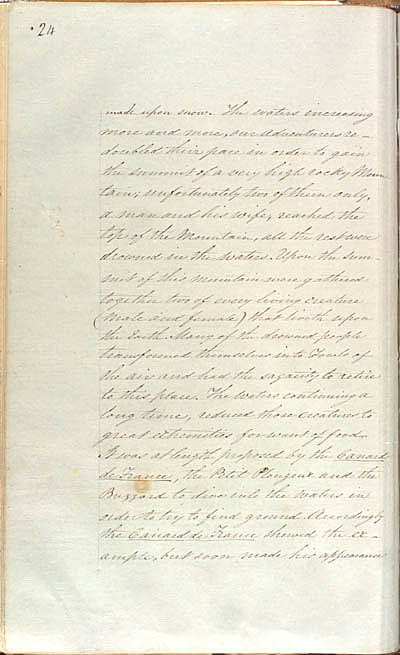 24
made upon snow. The waters increasing
more and more, our adventurers re-
doubled their pace in order to gain
the summit of a very high rocky Moun
tain; unfortunately two of them only,
a man and his wife, reached the
top of the Mountain, all the rest were
drowned in the waters. Upon the sum-
mit of this mountain were gathered
together two of every living creature
(Male and female) that liveth upon
the Earth. Many of the drowned people
transformed themselves into Fowls of
the air and had the sagacity to retire
to this place. The waters continuing a
long time, reduced those creatures to
great extremities for want of food.
It was at length proposed by the Canard
de France, the Petit Plongeux and the
Buzzard to dive into the waters in
order to try to find ground. Accordingly
the Canard de France showed the ex-
ample, but soon made his appearance